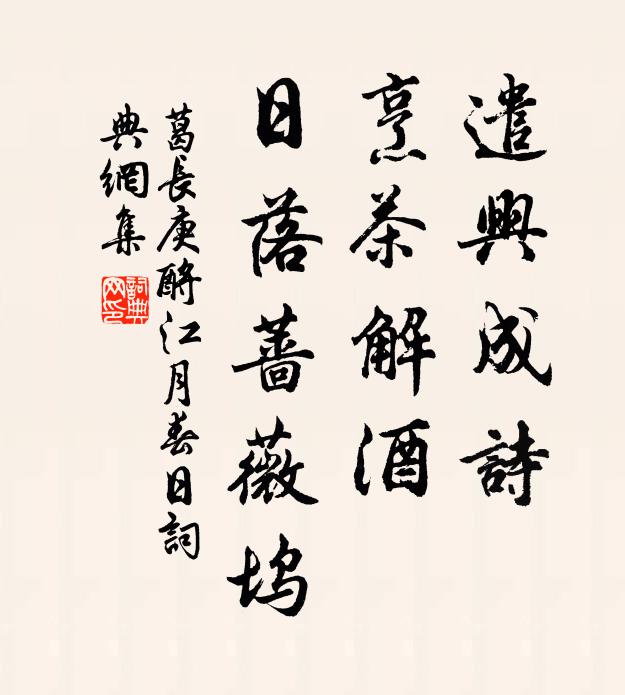 遣興成詩
烹茶解酒
日落薔薇塢
葛長庚酹江月春日詞
典網集
詞典
网印